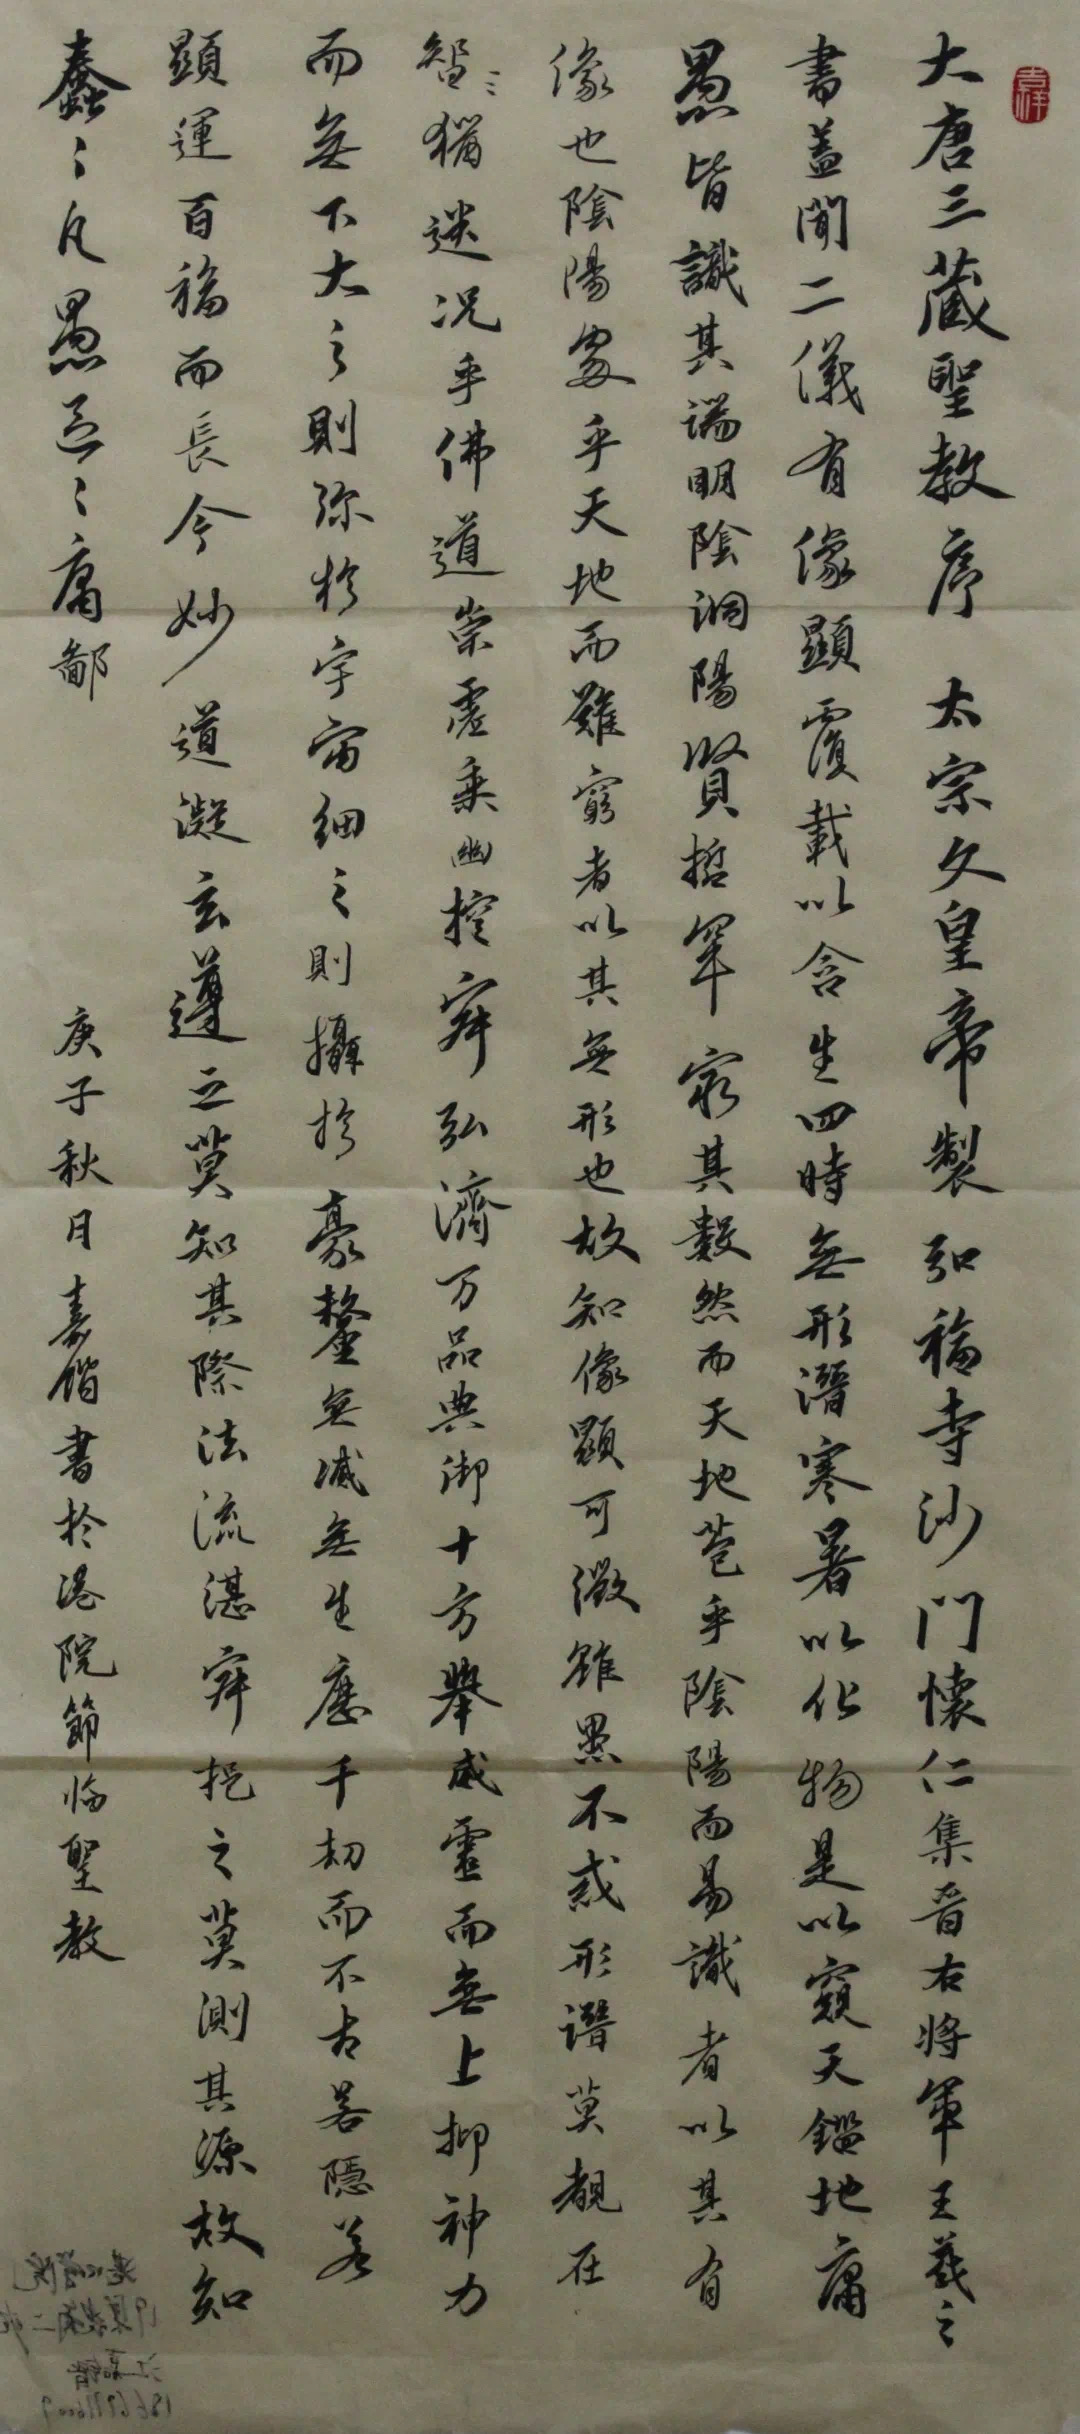 吉祥
大唐三藏聖教序 太宗文皇帝製弘福寺沙門懷仁集晉右將軍王羲之
書蓋聞二儀有像顯覆載以含生四時無形潛寒暑以化物是以窺天鑑地庸
愚皆識其端明陰洞陽賢哲罕窮其數然而天地苞乎陰陽而易識者以其有
像也陰陽處乎天地而難窮者以其無形也故知像顯可徵雖愚不惑形潛莫覩在
智〻猶迷况乎佛道崇虛乘幽控寂弘濟万品典御十方舉威靈而無上抑神力
而無下大之則弥於宇宙細之則攝於豪釐無減無生應千劫而不古若隱若
顯運百福而長今妙道凝玄遵之莫知其際法流湛寂挹之莫測其源故知
蠢〻凡愚區〻庸鄙
庚子秋月嘉鍇書於港院節临聖教